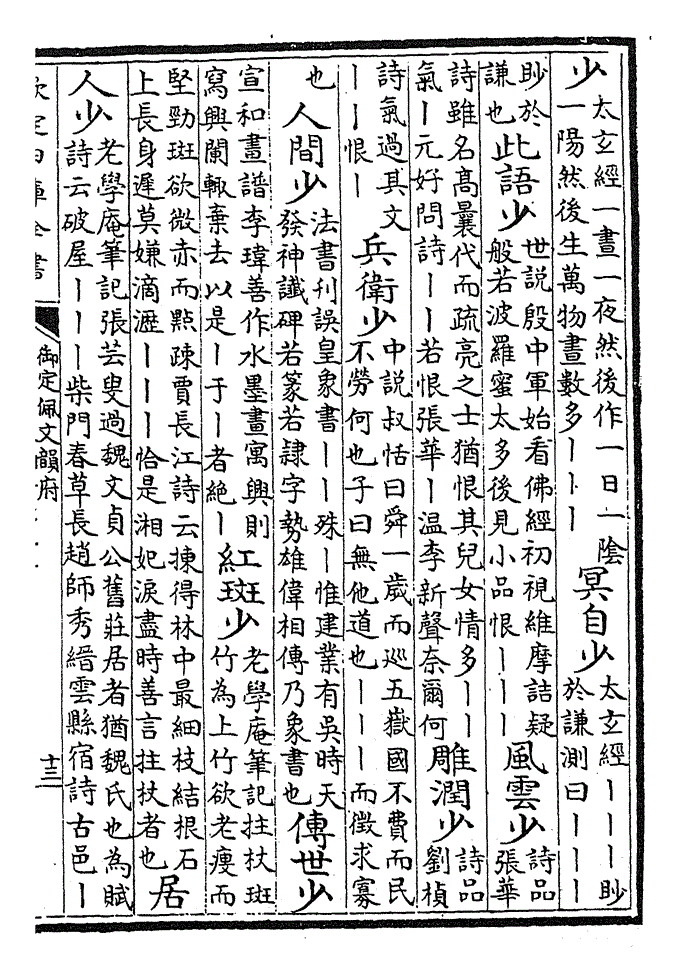 少
太玄經一晝一夜然後作一日一陰
一陽然後生萬物晝數多丨丨丨
冥自少
太玄經丨丨丨眇
於謙測曰丨丨丨
眇於
謙也
此語少
世說殷中軍始看佛經初視維摩詰疑
般若波羅蜜太多後見小品恨丨丨丨
風雲少
詩品
張華
詩雖名高曩代而疏亮之士猶恨其兒女情多丨丨
氣丨元好問詩丨丨若恨張華丨温李新聲奈爾何
雕潤少
詩品
劉楨
詩氣過其文
丨丨恨丨
兵衛少
中說叔恬曰舜一歲而巡五嶽國不費而民
不勞何也子曰無他道也丨丨丨而徵求寡
也
人間少
法書刊誤皇象書丨丨殊丨惟建業有吳時天
發神讖碑若篆若隸字勢雄偉相傳乃象書也
傳世少
宣和畫譜李瑋善作水墨畫寓興則
寫興闌輙棄去以是丨于丨者絶丨
紅斑少
老學庵筆記拄杖斑
竹為上竹欲老瘦而
堅勁斑欲微赤而點疎賈長江詩云揀得林中最細枝結根石
上長身遲莫嫌滴瀝丨丨丨恰是湘妃淚盡時善言拄杖者也
居
人少
老學庵筆記張芸叟過魏文貞公舊莊居者猶魏氏也為賦
詩云破屋丨丨丨柴門春草長趙師秀縉雲縣宿詩古邑丨
欽定四庫全書
御定佩文韻府
十三